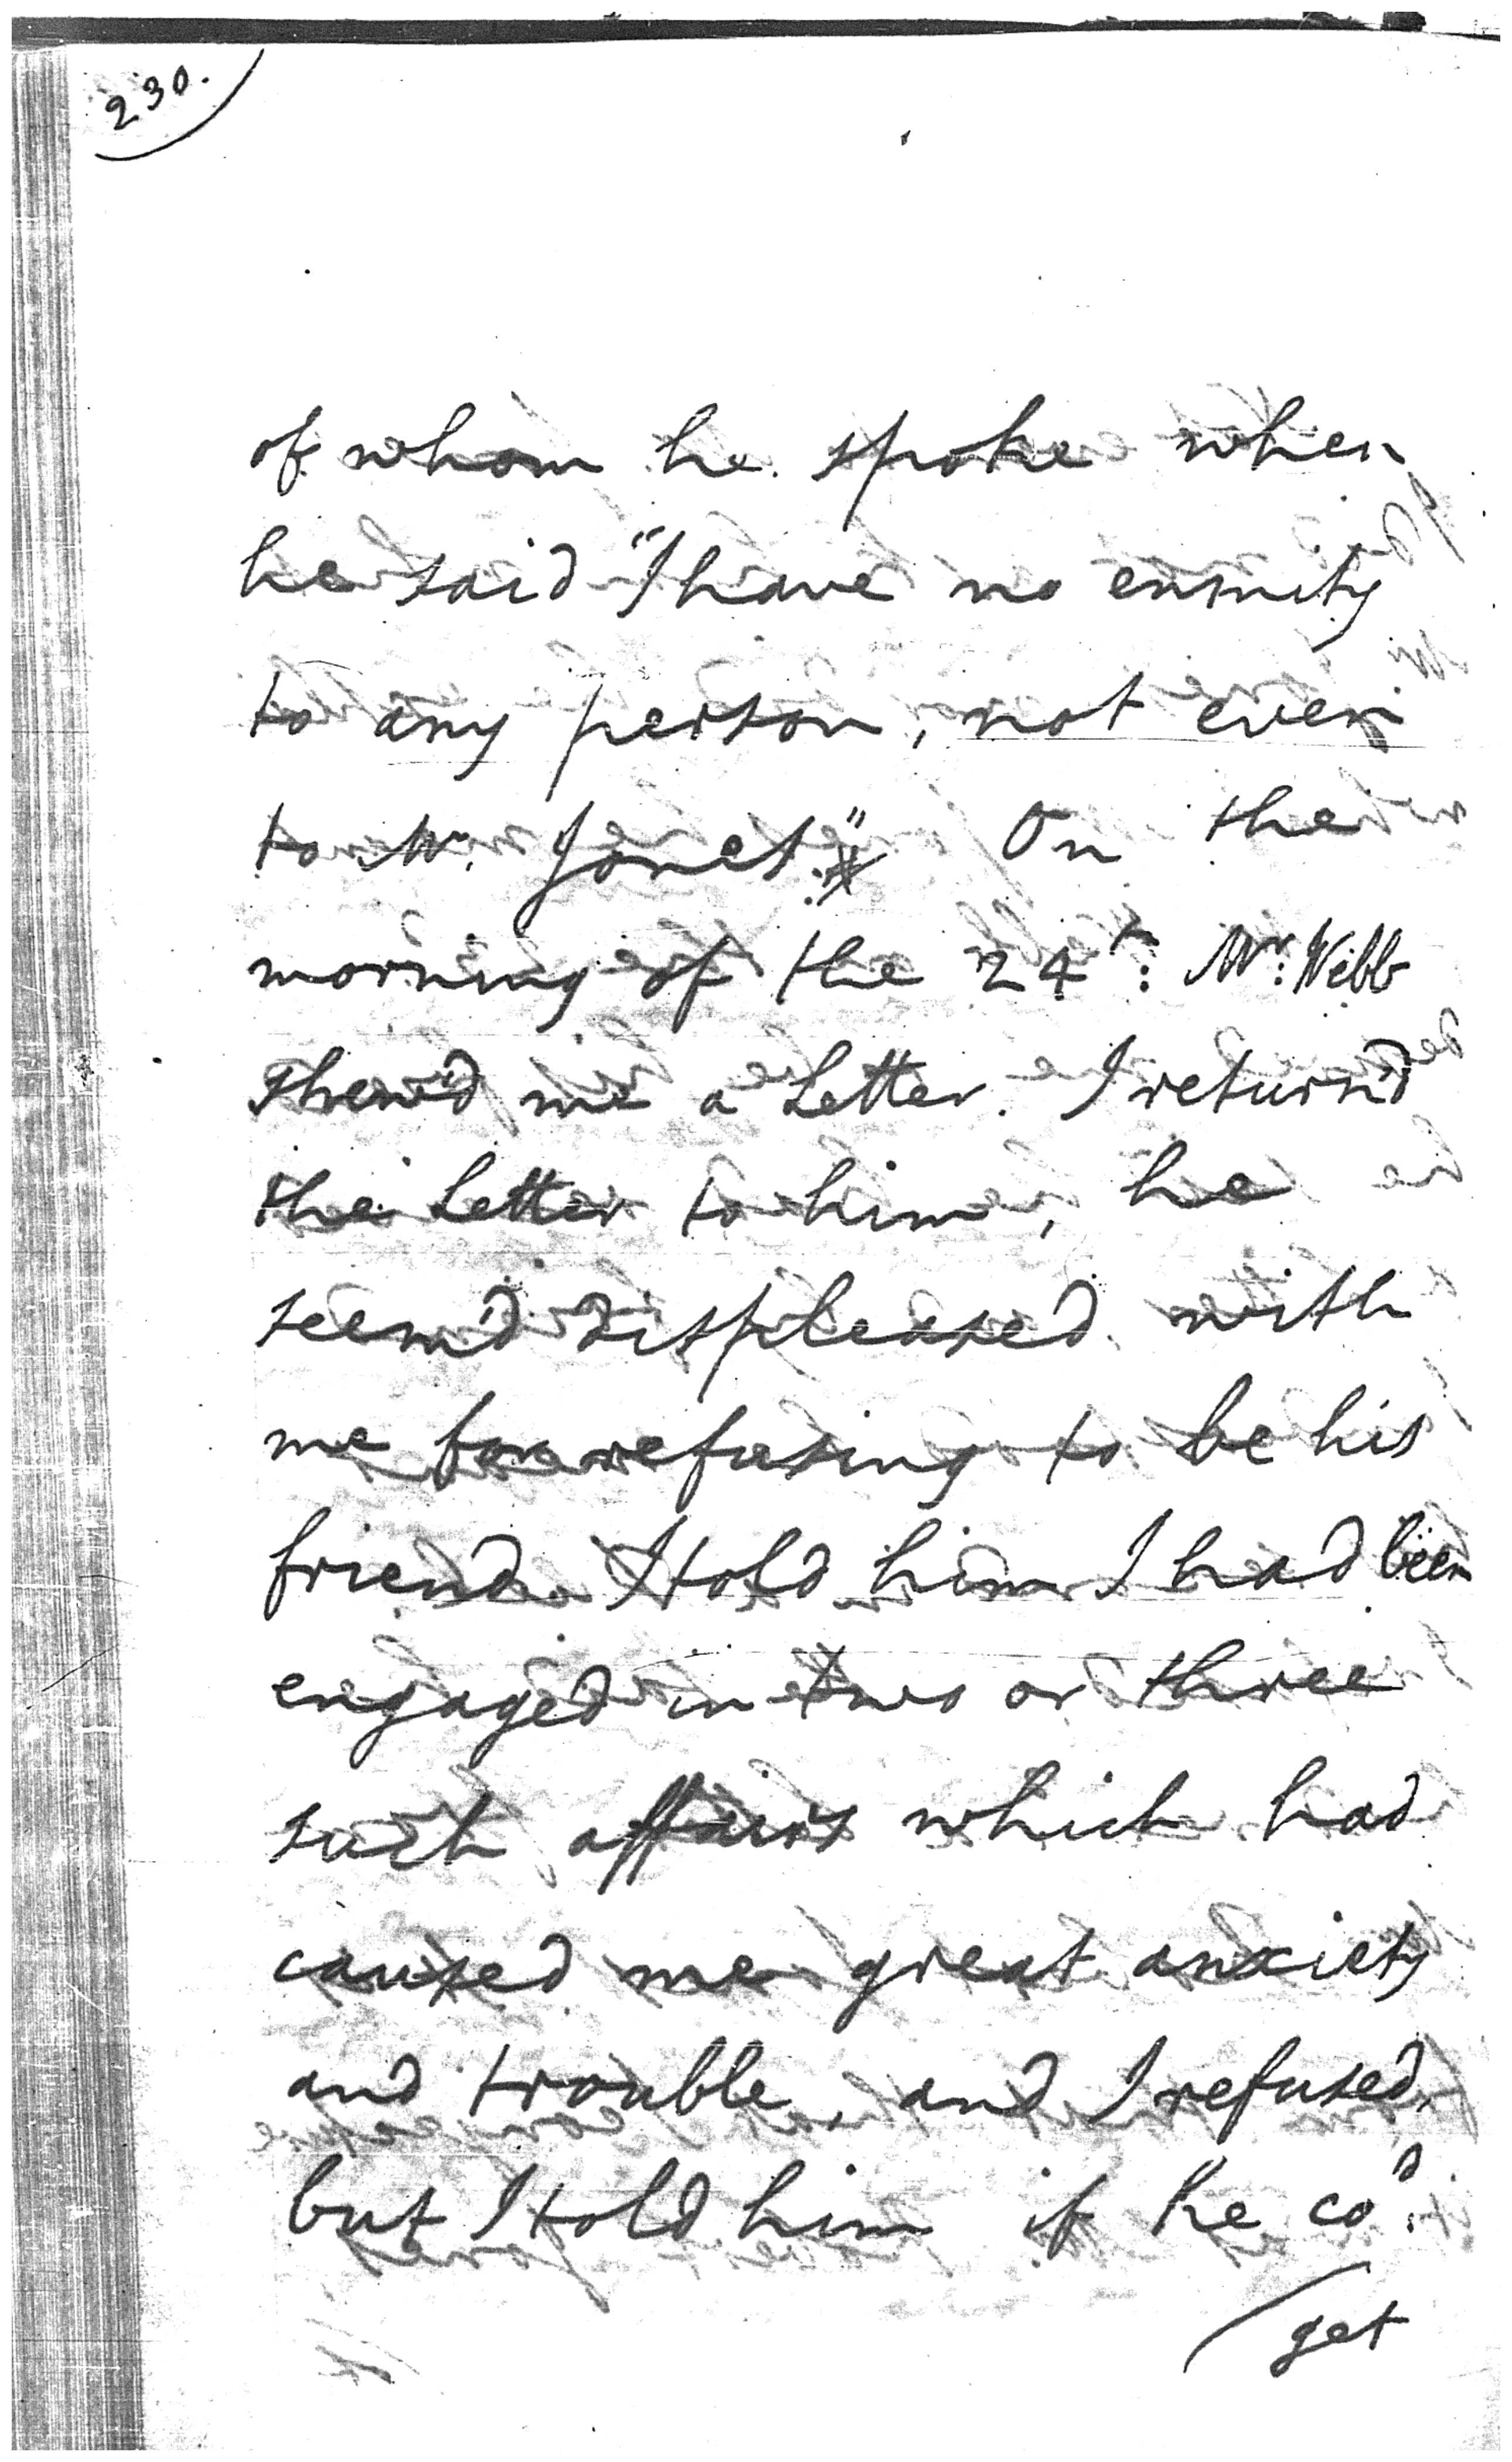 230.
of whom he spoke when
he said "I have no enmity
to any person, not even
to Mr. Jones." On the
morning of the 24th: Mr: Webb
shew'd me a Letter. I return'd
the Letter to him, he
seem'd displeased with
me for refusing to be his
friend. I told him I had been
engaged in two or three
such affairs which had
caused me great anxiety
and trouble, and I refused,
but I told him if he cod.
get